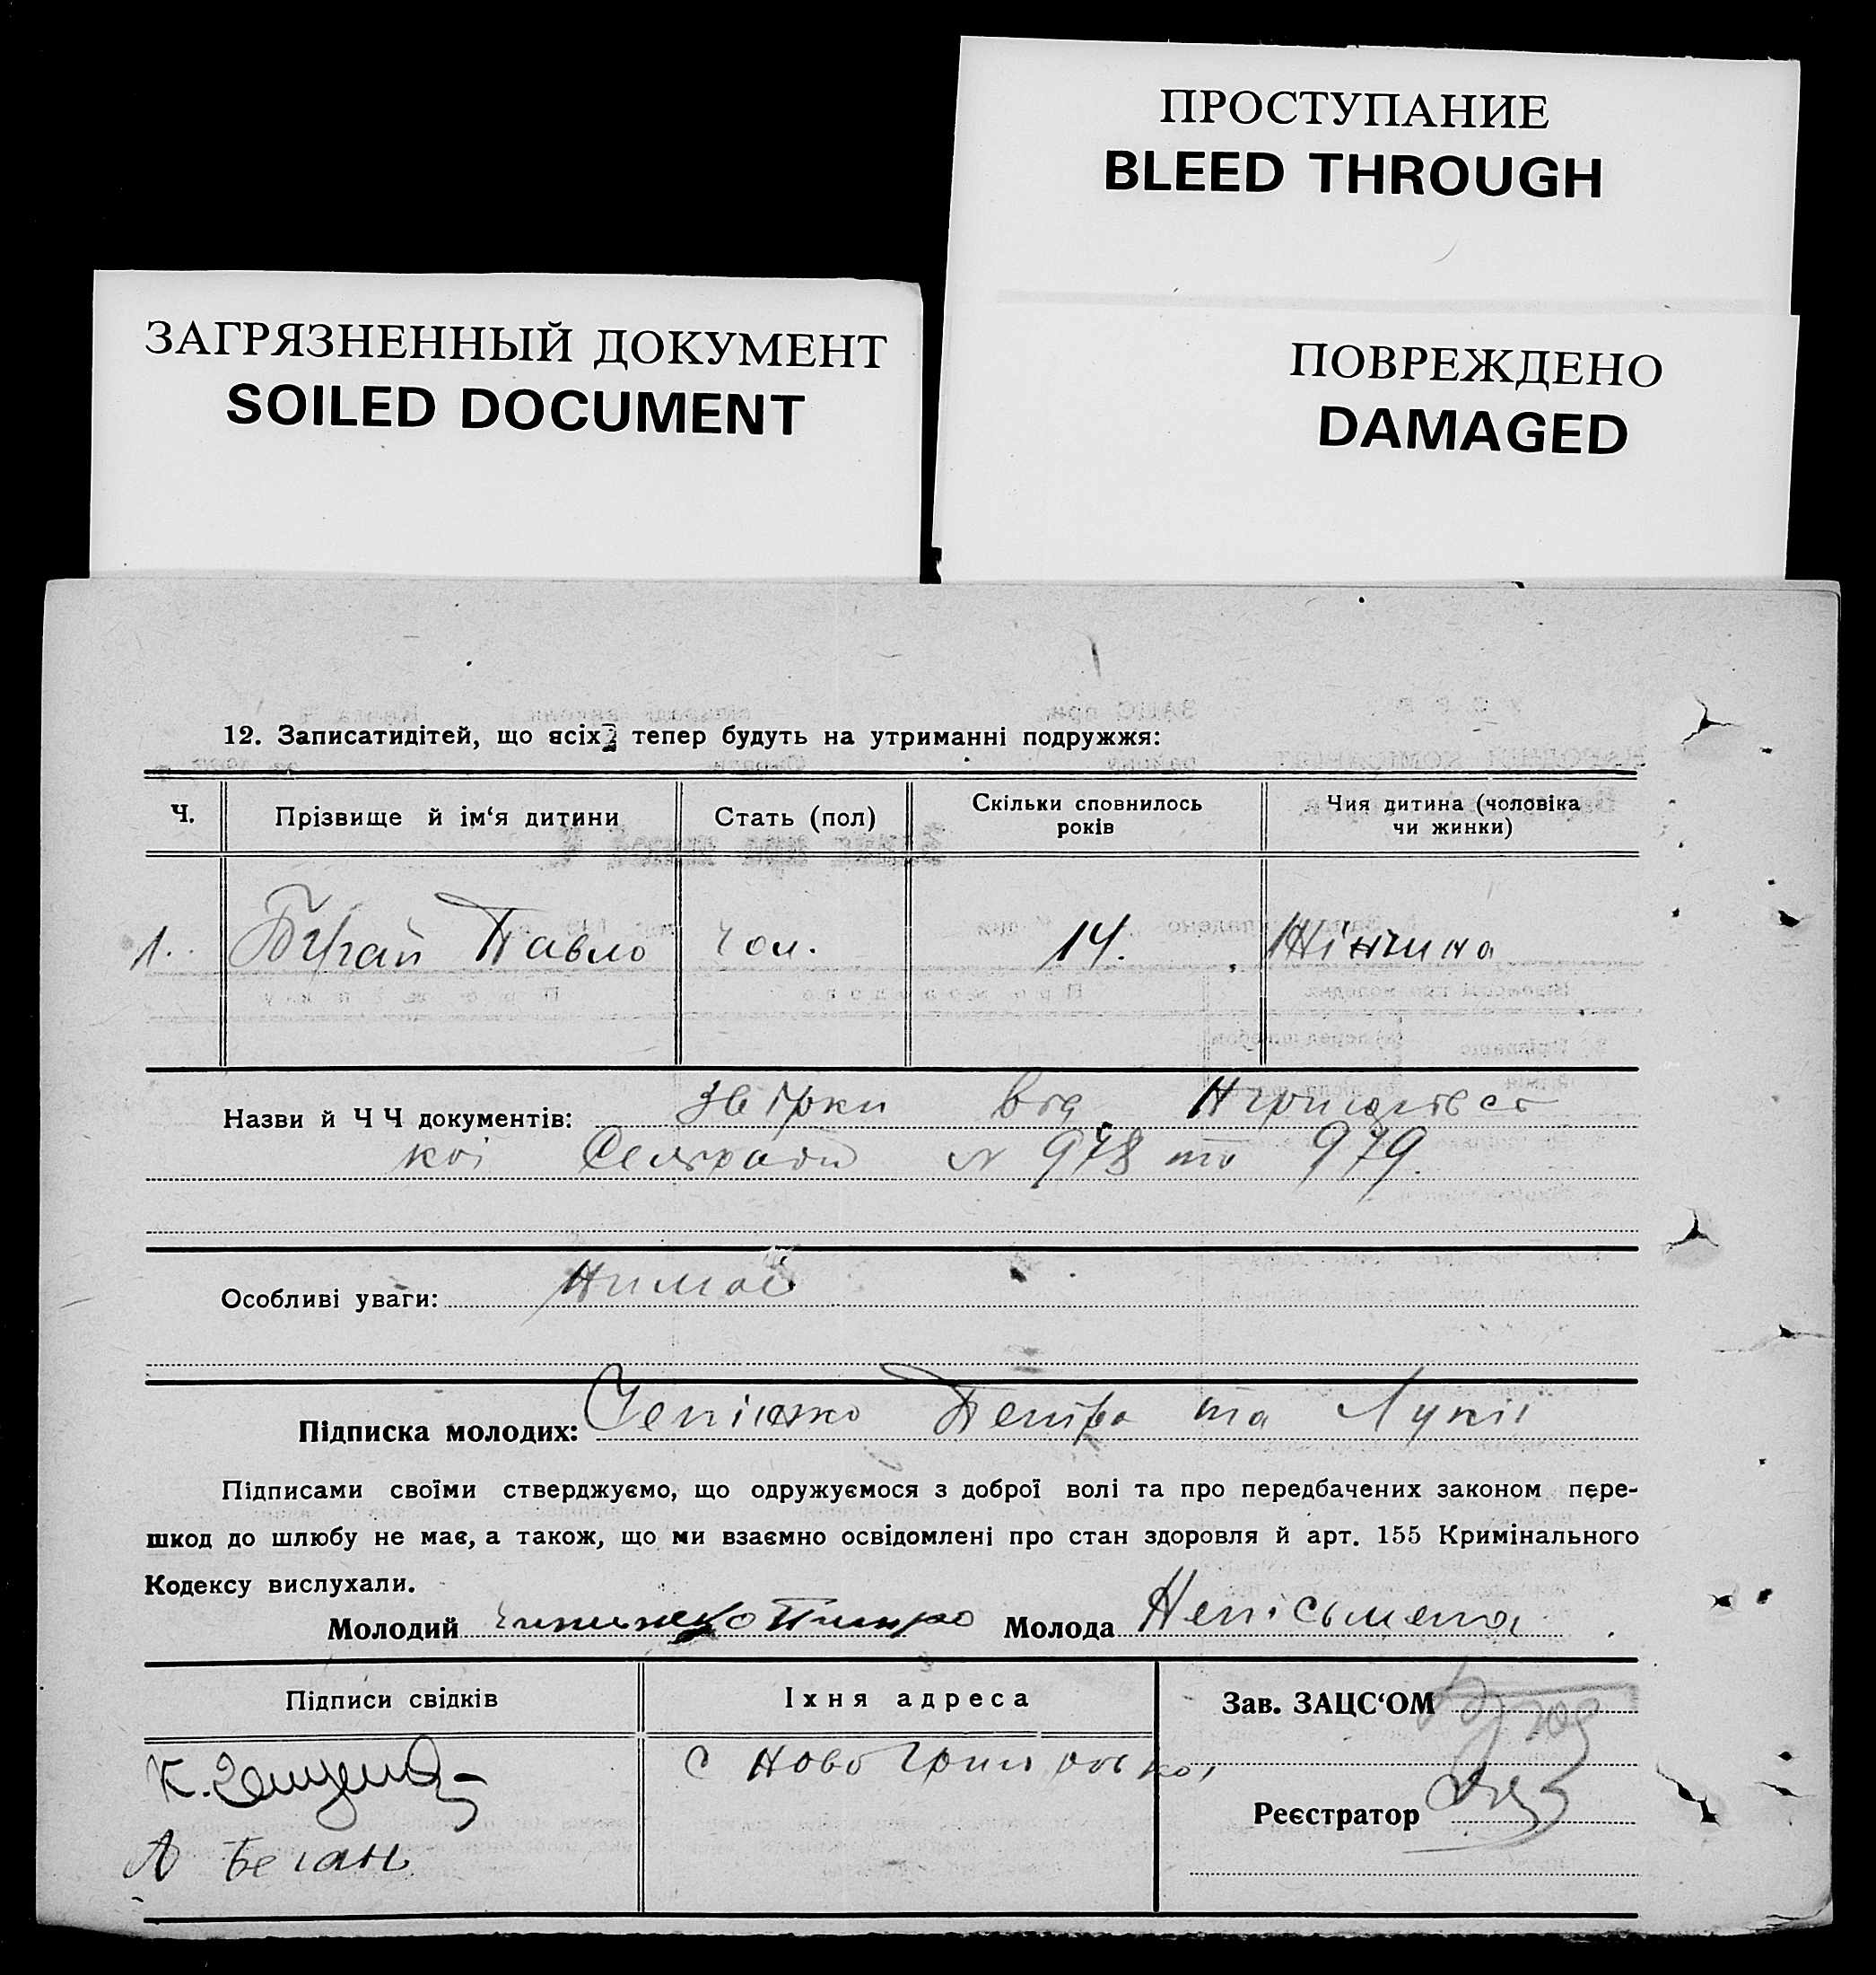 ПРОСТУПАНИЕ
BLEED THROUGH
ЗАГРЯЗНЕННЫЙ ДОКУМЕНТ
SOILED DOCUMENT
ПОВРЕЖДЕНО
DAMAGED
12. Записатидітей, що всіх тепер будуть на утриманні подружжя:
Ч.
Прізвище й ім‘я дитини
Стать (пол)
Скільки сповнилось
років
Чия дитина (чоловіка
чи жинки)
1. Павло чол. 14. Жінчина
Назви й Ч Ч документів: від
кої Сельради № 978 та 979.
Особливі уваги: Нимає
Підписка молодих: Петра та Лукії
Підписами своїми стверджуємо, що одружуємося з доброї волі та про передбачених законом пере-
шкод до шлюбу не має, а також, що ми взаємно освідомлені про стан здоровля й арт. 155 Кримінального
Кодексу вислухали.
Молодий Молода Непісьмена
Підписи свідків
Їхня адреса
Зав. ЗАЦС‘ОМ
К.
с Ново
Реєстратор
А